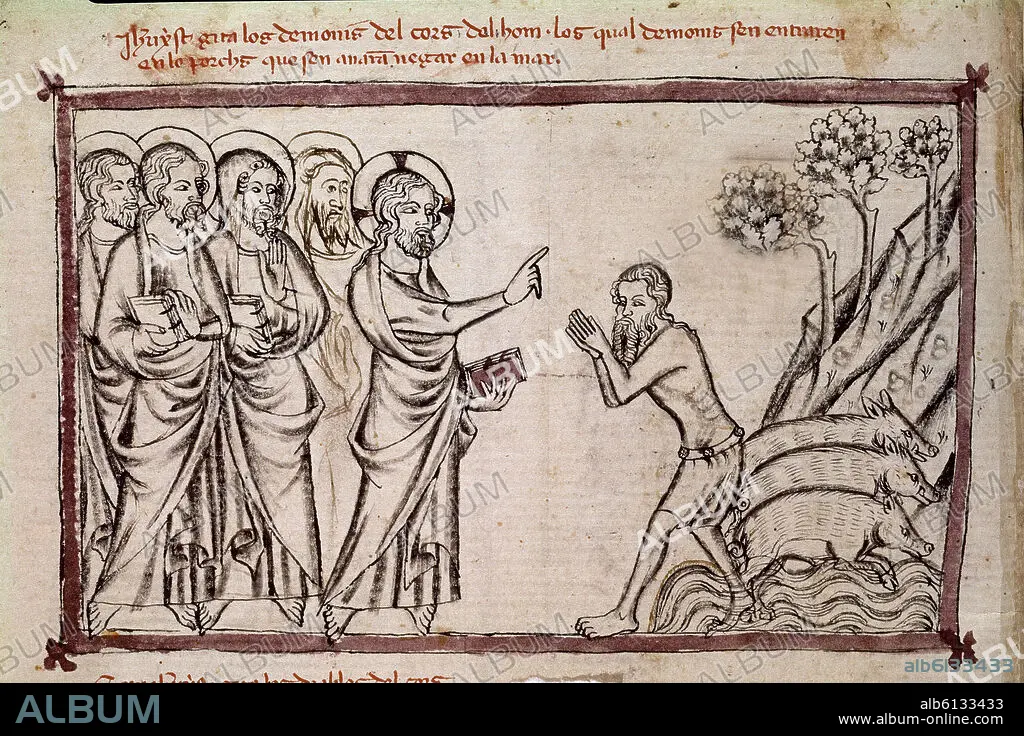 Jhūxst gita los demonis del cors del hom · los qual demonis sen entraren
en le porchs que sen anaran negar en la mar.
los diables del cors
ALBUM
alb6133433
ALBUM
alb6133433
www.album-online.com